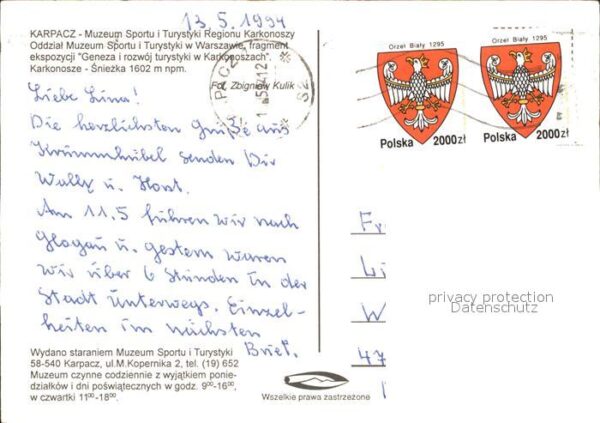 13.5.1994
KARPACZ - Muzeum Sportu i Turystyki Regionu Karkonoszy
Oddział Muzeum Sportu i Turystyki w Warszawie, fragment
ekspozycji "Geneza i rozwój turystyki w Karkonoszach".
Karkonosze - Śnieżka 1602 m npm.
Fot. Zbigniew Kulik
Orzeł Biały 1295
Polska 2000zł
Orzeł Biały 1295
Polska 2000zł
Liebe Luna!
Die herzlichsten Grüße aus
Krummhübel senden Dir
Wally u. Horst.
Am 11.5 fuhren wir nach
Glogau u. gestern waren
wir über 6 Stunden in der
Stadt unterwegs. Einzel-
heiten im nächsten
Brief.
Fr
Li
W
47
privacy protection
Datenschutz
Wydano staraniem Muzeum Sportu i Turystyki
58-540 Karpacz, ul.M.Kopernika 2, tel. (19) 652
Muzeum czynne codziennie z wyjątkiem ponie-
działków i dni poświątecznych w godz. 9⁰⁰-16⁰⁰,
w czwartki 11⁰⁰-18⁰⁰.
Wszelkie prawa zastrzeżone